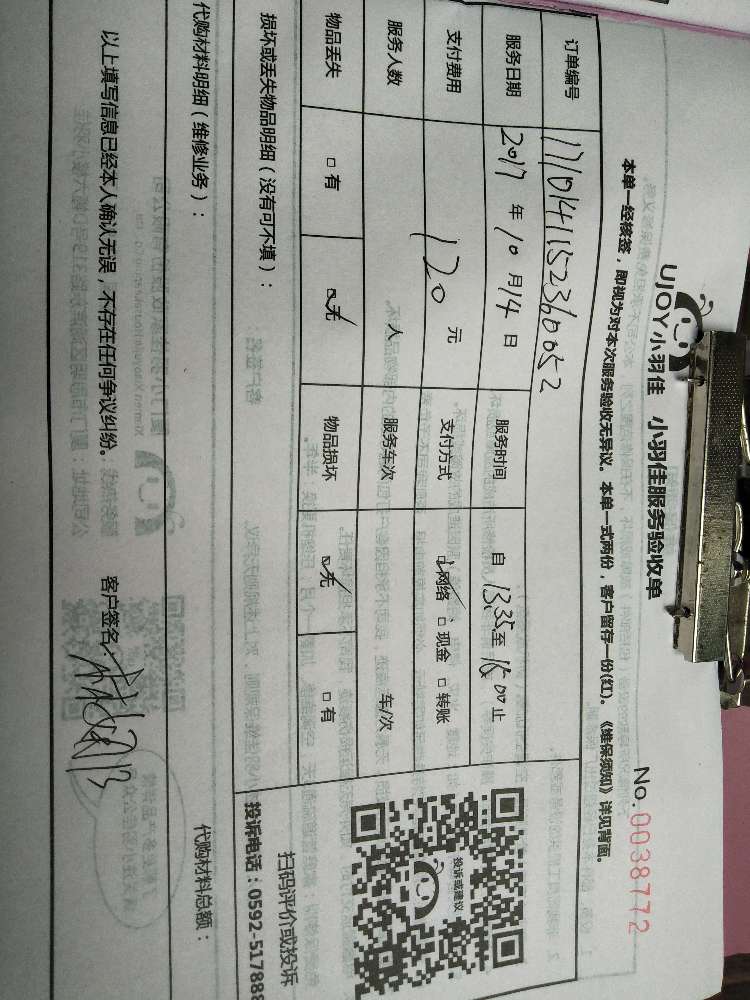 UJOY小羽佳 小羽佳服务验收单
No. 0038772
本单一经核签，即视为对本次服务验收无异议。本单一式两份，客户留存一份(红)。《维保须知》详见背面。
订单编号 171014115236052
服务日期 2017 年 10 月 14 日 服务时间 自 13:35 至 16:00 止
支付费用 120 元 支付方式 ☑网络 □现金 □转账
服务人数 人 服务车次 车/次
物品丢失 □有 ☑无 物品损坏 ☑无 □有
投诉或建议
扫码评价或投诉
投诉电话：0592-517888
损坏或丢失物品明细（没有可不填）：
代购材料明细（维修业务）： 代购材料总额：
以上填写信息已经本人确认无误，不存在任何争议纠纷。 客户签名：